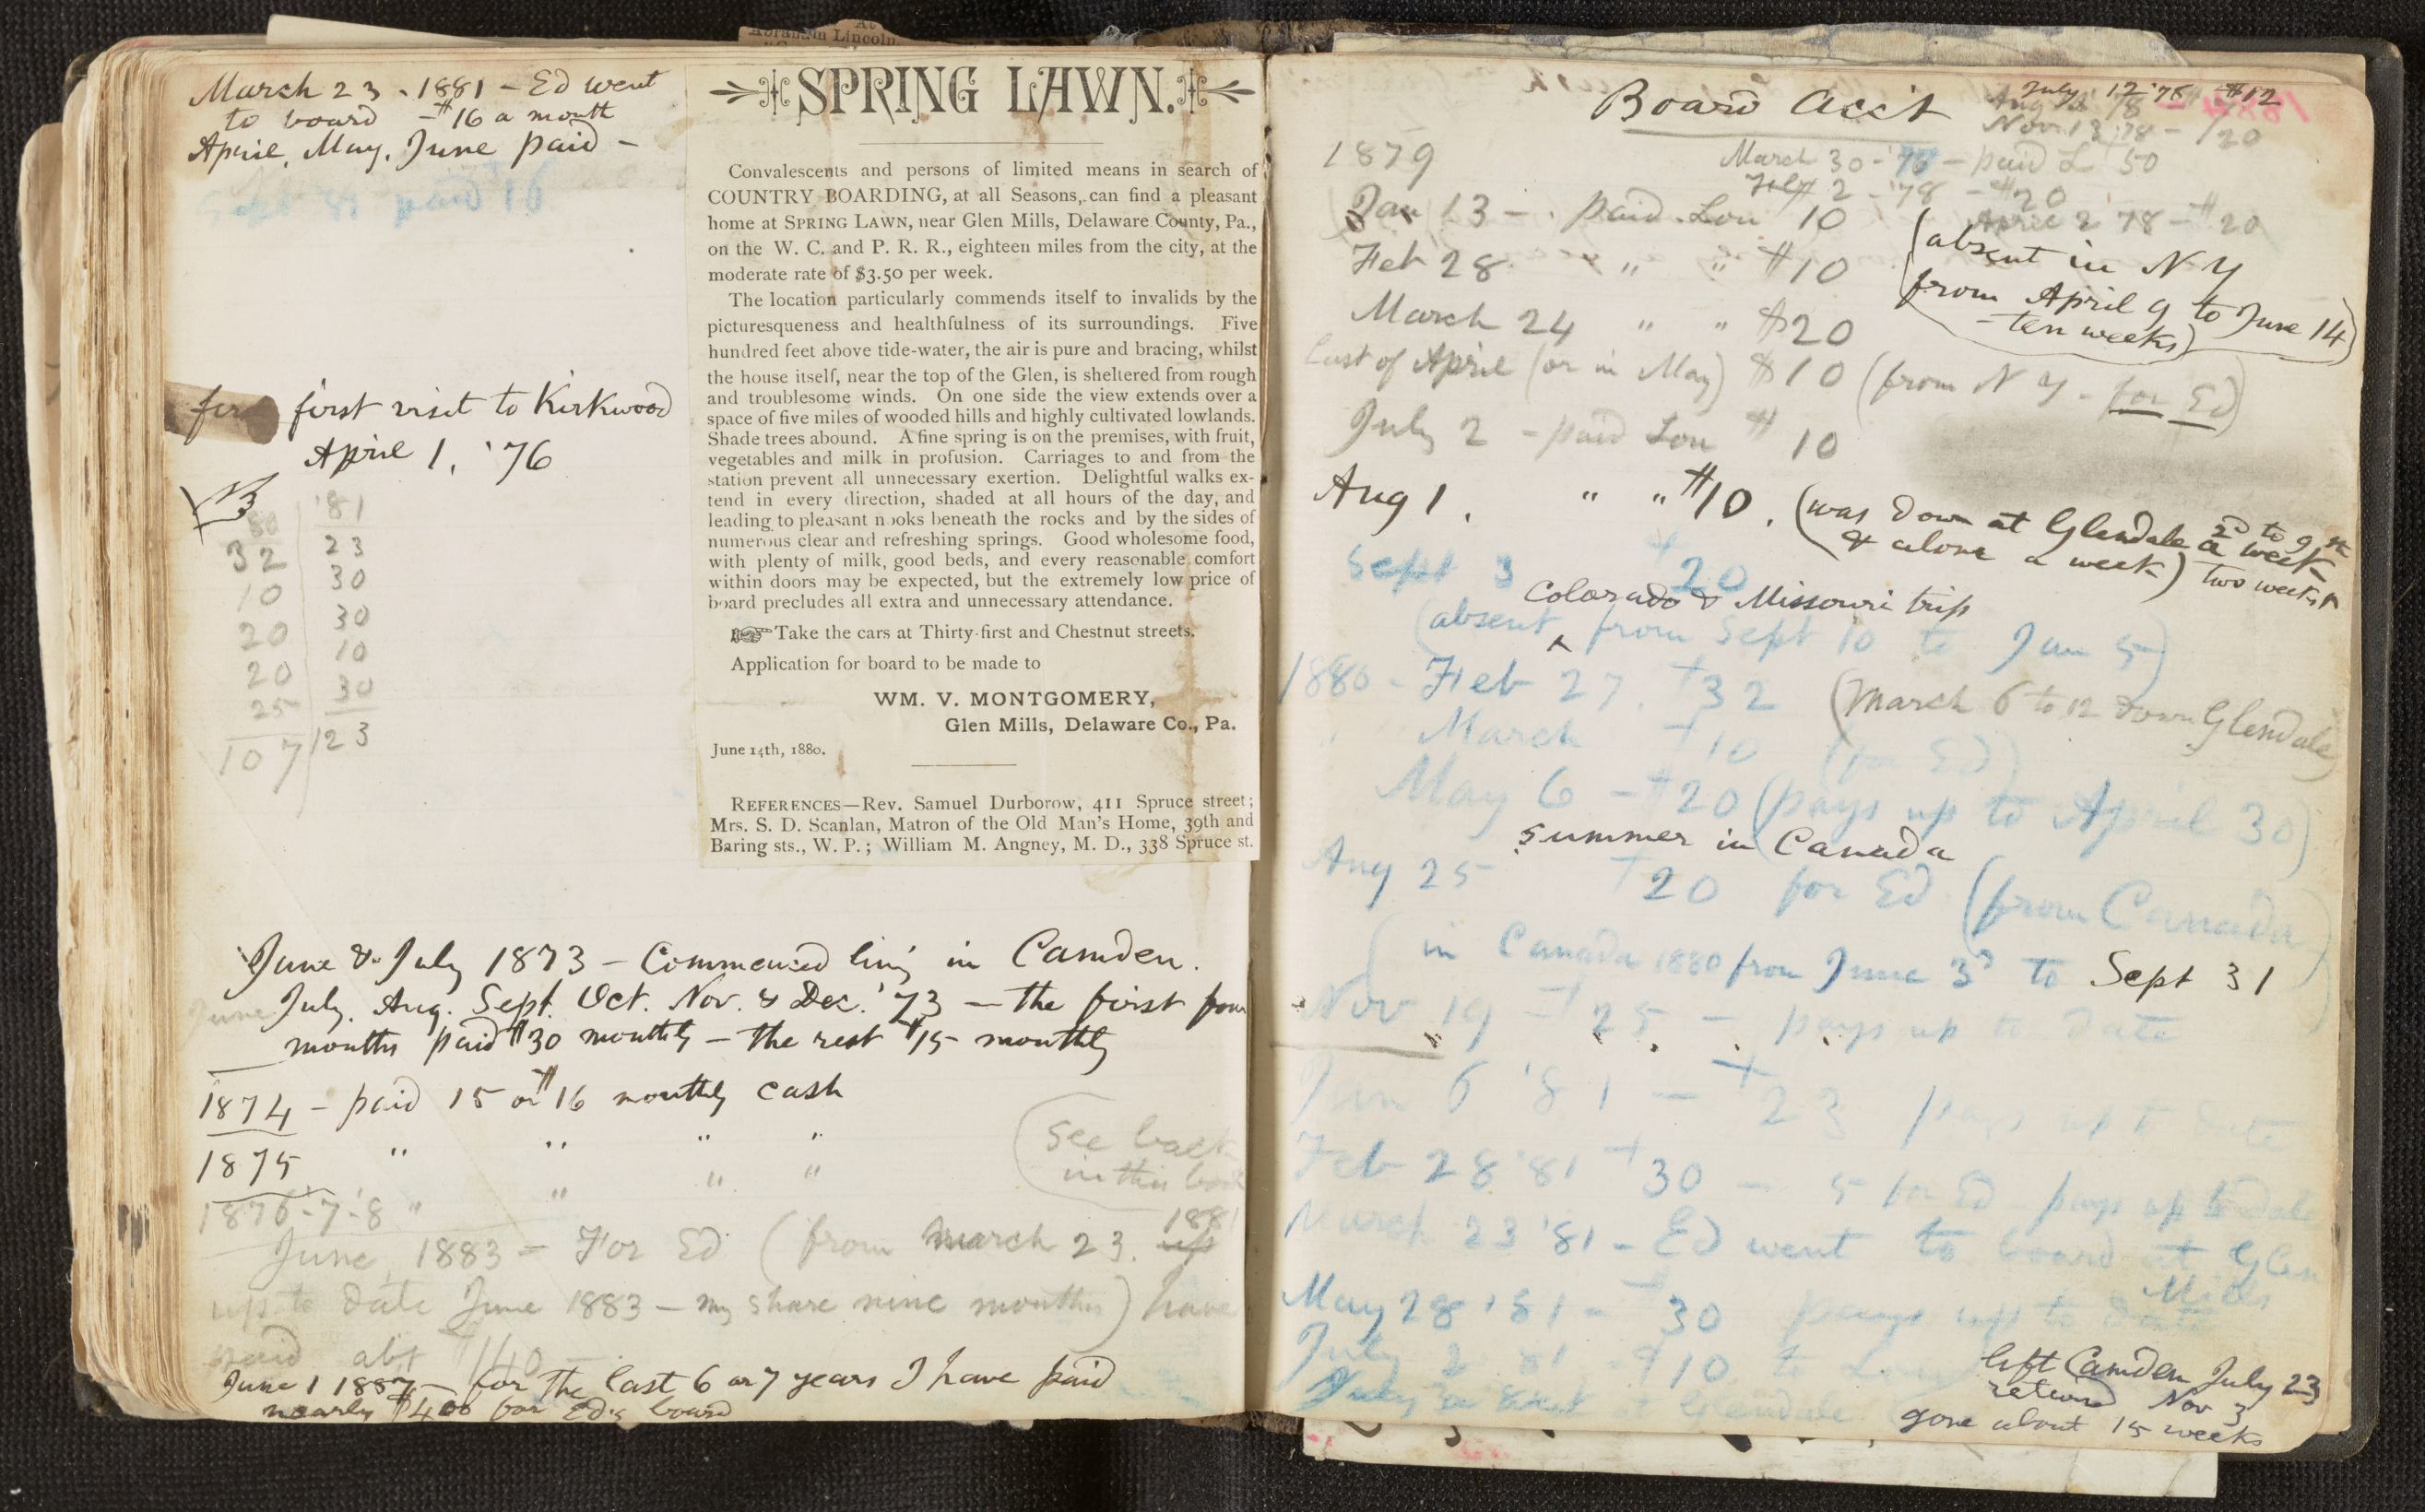 Abraham Lincoln
March 23 - 1881 - Ed went
to board - $16 a month
April, May, June paid -
Sept 81 paid 16
first visit to Kirkwood
April 1, '76
80 '81
32 23
10 30
20 30
20 10
25 30
107 123
SPRING LAWN.
Convalescents and persons of limited means in search of
COUNTRY BOARDING, at all Seasons, can find a pleasant
home at SPRING LAWN, near Glen Mills, Delaware County, Pa.,
on the W. C. and P. R. R., eighteen miles from the city, at the
moderate rate of $3.50 per week.
The location particularly commends itself to invalids by the
picturesqueness and healthfulness of its surroundings. Five
hundred feet above tide-water, the air is pure and bracing, whilst
the house itself, near the top of the Glen, is sheltered from rough
and troublesome winds. On one side the view extends over a
space of five miles of wooded hills and highly cultivated lowlands.
Shade trees abound. A fine spring is on the premises, with fruit,
vegetables and milk in profusion. Carriages to and from the
station prevent all unnecessary exertion. Delightful walks ex-
tend in every direction, shaded at all hours of the day, and
leading to pleasant nooks beneath the rocks and by the sides of
numerous clear and refreshing springs. Good wholesome food,
with plenty of milk, good beds, and every reasonable comfort
within doors may be expected, but the extremely low price of
board precludes all extra and unnecessary attendance.
Take the cars at Thirty-first and Chestnut streets.
Application for board to be made to
WM. V. MONTGOMERY,
Glen Mills, Delaware Co., Pa.
June 14th, 1880.
REFERENCES—Rev. Samuel Durborow, 411 Spruce street;
Mrs. S. D. Scanlan, Matron of the Old Man's Home, 39th and
Baring sts., W. P.; William M. Angney, M. D., 338 Spruce st.
June & July 1873 - Commenced living in Camden.
June July, Aug. Sept. Oct. Nov. & Dec. '73 - the first four
months paid $30 monthly - the rest $15 monthly
1874 - paid 15 or $16 monthly cash
1875 " " " "
1876-'7-'8 " " " "
(see back
in this book
June 1883 - For Ed (from march 23. 1881
up to date June 1883 - my share nine months) have
paid abt $140 -
June 1 1887 - for the last 6 or 7 years I have paid
nearly $400 for Ed's board
Board acc't
July 12 '78 - $12
Nov 13 '78 - $20
1879
March 30 - '78 - paid L 50
2 - '78 - $20
April 2 '78 - $20
Jan 13 - paid Lou 10
(absent in N Y
from April 9 to June 14
- ten weeks)
Feb 28 " " $10
March 24 " " $20
last of April (or in May) $10 (from N Y - for Ed)
July 2 - paid Lou $10
Aug 1. " " $10. (was down at Glendale a week
2d to 9th
& alone a week) two weeks
Sept 3 $20
Colorado & Missouri trip
(absent ^ from Sept 10 to Jan 5)
1880 - Feb 27. $32 (March 6 to 12 down Glendale)
March $10 (for Ed)
May 6 - $20 (pays up to April 30)
summer in Canada
Aug 25 $20 for Ed (from Canada)
(in Canada 1880 from June 3d to Sept 31
Nov 19 - $25 - pays up to date
Jan 6 '81 - $23 pays up to date
Feb 28 '81 $30 - 5 for Ed pays up to date
March 23 '81 - Ed went to board at Glen
Mills
May 28 '81 - $30 pays up to date
July 2 81 $10 to Lou
July at Glendale
left Camden July 23
returned Nov 3
gone about 15 weeks